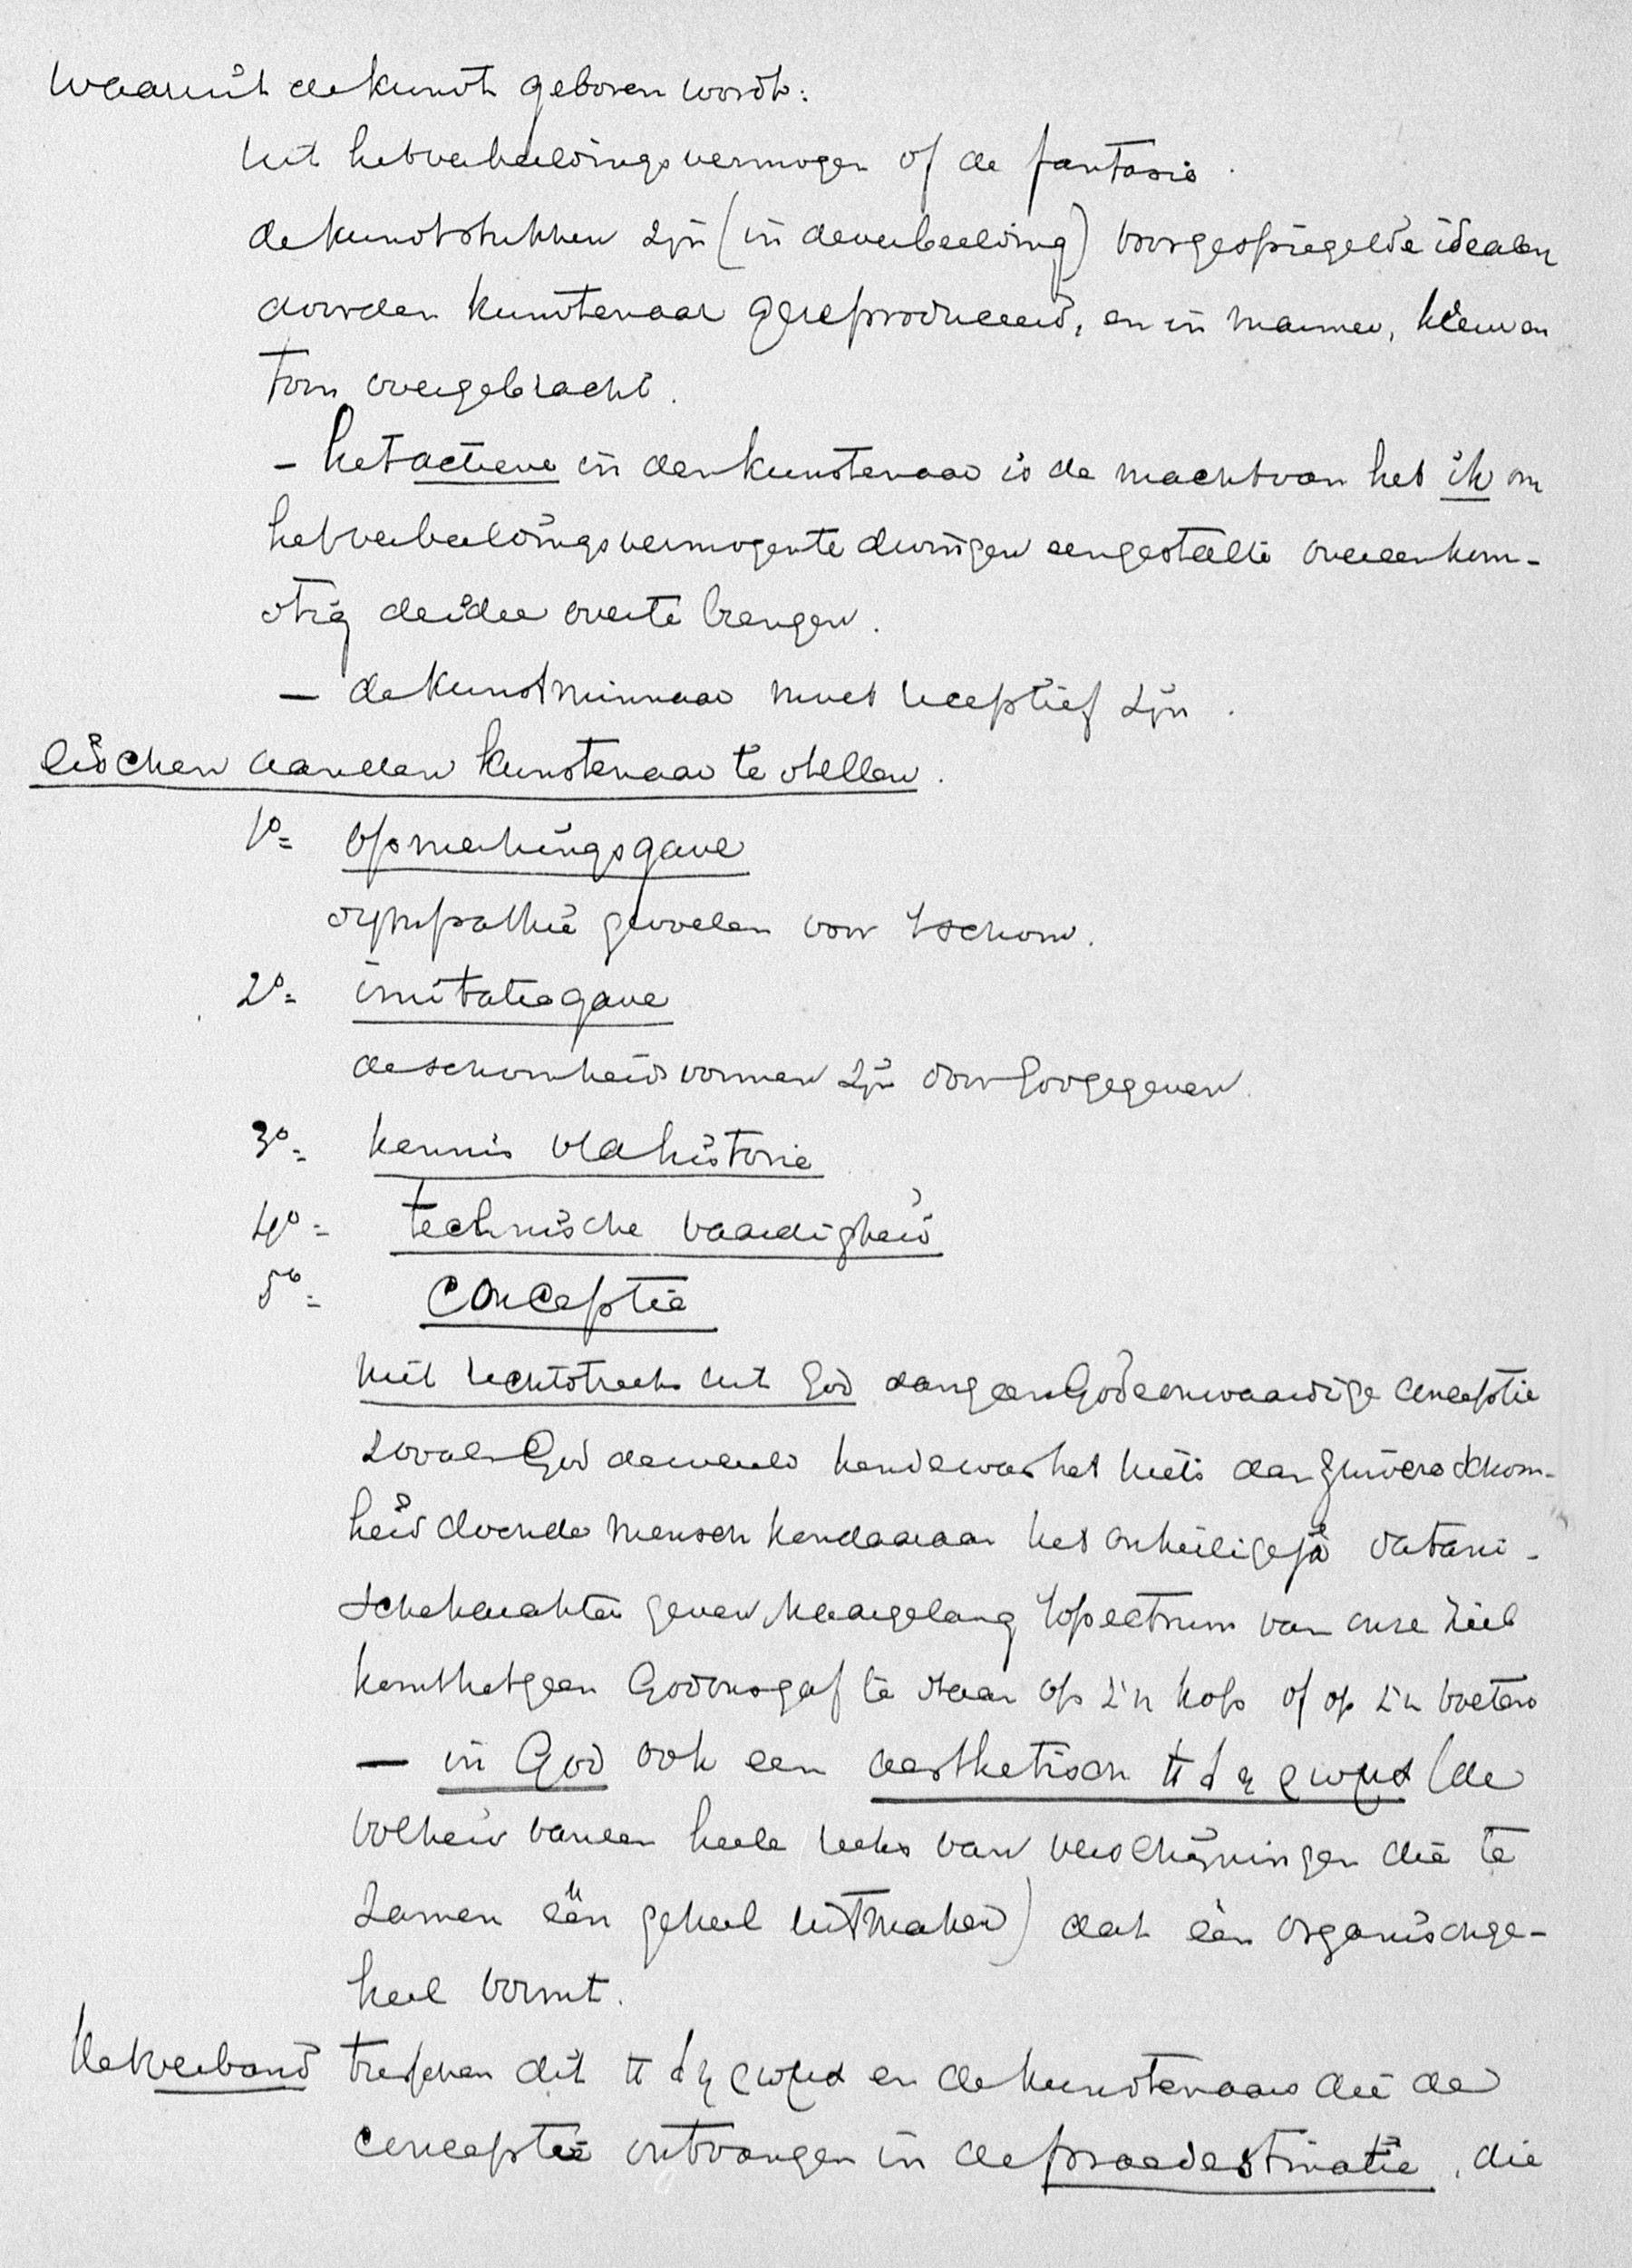 Waaruit de kunst geboren wordt:
uit het verbeeldingsvermogen of de fantasie.
de kunststukken zijn (in de verbeelding) voorgespiegelde idealen
door den kunstenaar gereproduceerd, en in marmer, kleur en
toon overgebracht.
– het actieve in den kunstenaar is de macht van het ik om
het verbeeldingsvermogen te dwingen een gestalte overeenkom-
stig de idee over te brengen.
– de kunstminnaar moet receptief zijn.
eischen aan den kunstenaar te stellen.
1o= opmerkingsgave
sympathie gevoelen voor 't schoon.
2o= imitatiegave
de schoonheidsvormen zijn door God gegeven.
3o= kennis v/d historie
4o= technische vaardigheid
5o= conceptie
niet rechtstreeks uit God dan geen God onwaardige conceptie
zooals God de wereld kende was het niets dan zuivere schoon-
heid doch de mensch kan daaraan het onheilige ja satani-
sche karakter geven, naargelang 't spectrum van onze ziel
komt hetgeen God ons gaf te staan op z'n kop of op z'n voeten
– in God ook een aesthetisch πληρωμα (de
volheid van een heele reeks van verschijningen die te
zamen één geheel uitmaken) dat één organisch ge-
heel vormt.
Het verband tusschen dit πληρωμα en de kunstenaars die de
conceptie ontvangen in de praedestinatie, die